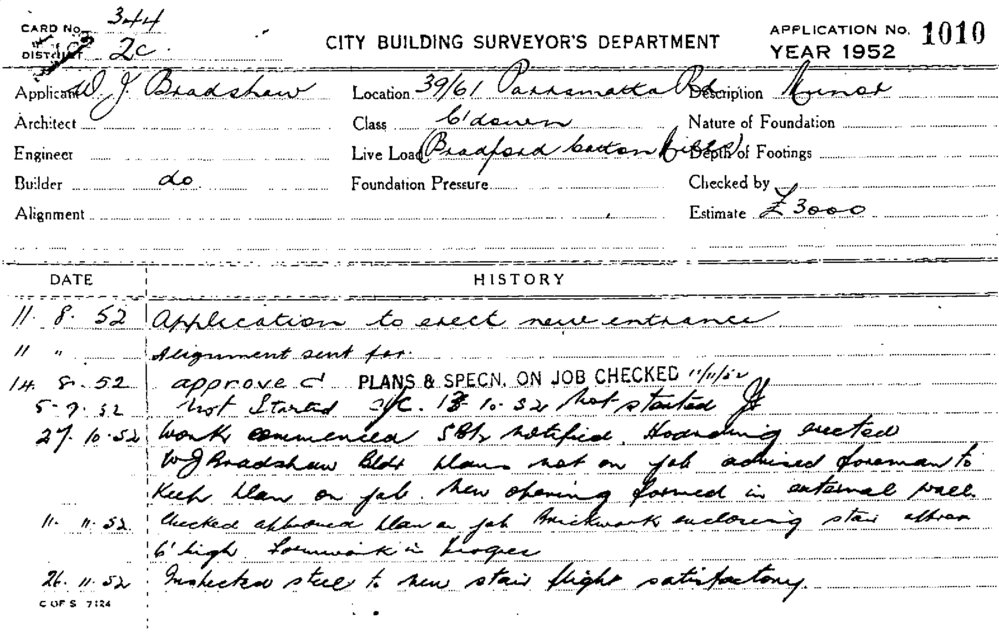 CARD No. 344
DISTRICT 2C.
CITY BUILDING SURVEYOR'S DEPARTMENT
APPLICATION No. 1010
YEAR 1952
Applicant W. J. Bradshaw
Location 39/61 Parramatta Rd
Description Minor
Architect
Class C'down
Nature of Foundation
Engineer
Live Load (Bradford Cotton Mills)
Depth of Footings
Builder do
Foundation Pressure
Checked by
Alignment
Estimate £3000
DATE HISTORY
11. 8. 52 Application to erect new entrance
11 " Alignment sent for.
14. 8. 52 approved PLANS & SPECN. ON JOB CHECKED 11/11/52
5. 9. 52 Not Started 13.10.52 Not started
27. 10. 52 Work commenced notified. Hoarding erected
W J Bradshaw Bldr plans not on job advised foreman to
keep plan on job. New opening formed in external wall.
11. 11. 52 Checked approved plan on job Brickwork enclosing stair approx
6' high. Formwork in progress
26. 11. 52 Inspected steel to new stair flight satisfactory.
C OF S 7124